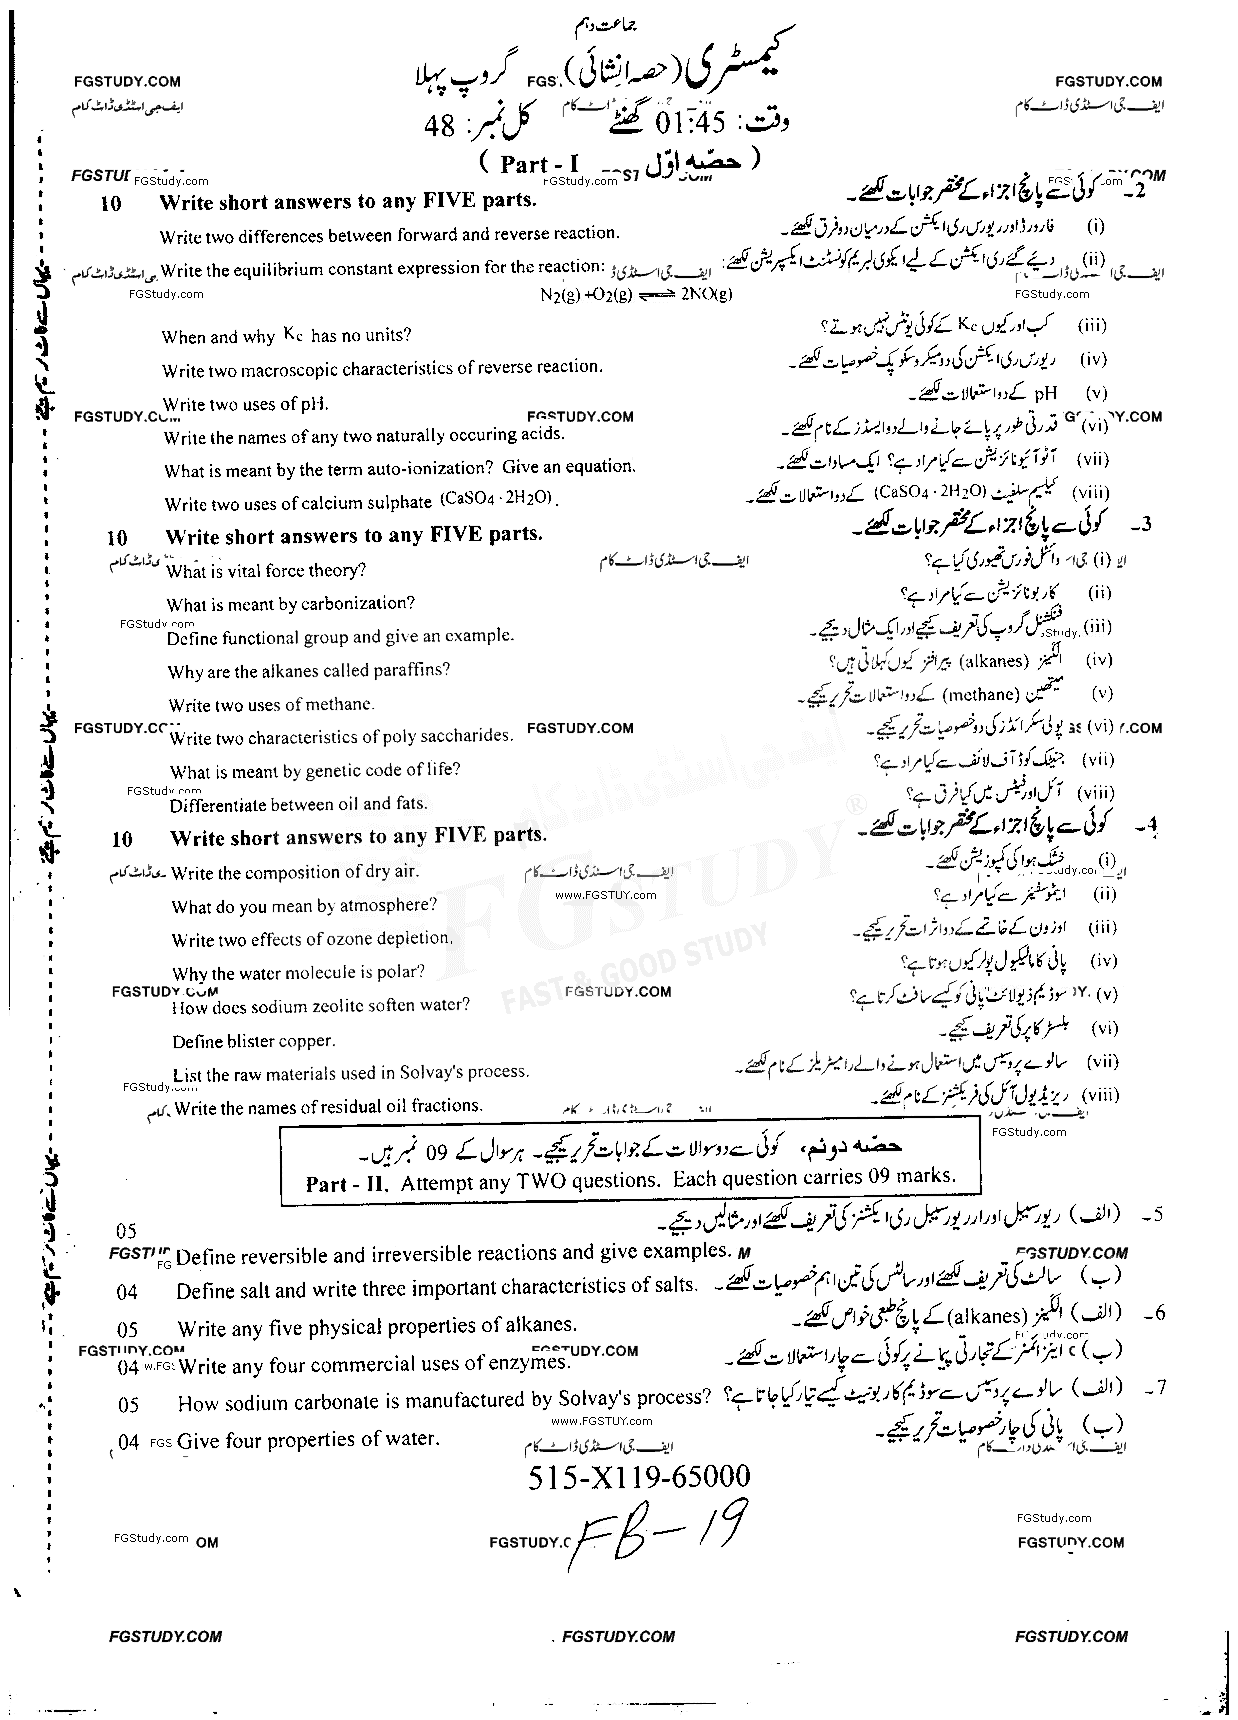 جماعت دہم
کیمسٹری (حصہ انشائی) گروپ پہلا
FGSTUDY.COM FGS FGSTUDY.COM
ایف جی اسٹڈی ڈاٹ کام
وقت: 01:45 گھنٹے کل نمبر: 48
حصّہ اوّل ( Part - I )
2- کوئی سے پانچ اجزاء کے مختصر جوابات لکھئے۔
10 Write short answers to any FIVE parts.
(i) فارورڈ اور ریورس ری ایکشن کے درمیان دو فرق لکھئے۔
Write two differences between forward and reverse reaction.
(ii) دیے گئے ری ایکشن کے لیے ایکوی لبریم کونسٹنٹ ایکسپریشن لکھئے:
Write the equilibrium constant expression for the reaction:
FGStudy.com N2(g) +O2(g) ⇌ 2NO(g) FGStudy.com
(iii) کب اور کیوں Kc کے کوئی یونٹس نہیں ہوتے؟
When and why Kc has no units?
(iv) ریورس ری ایکشن کی دو میکروسکوپک خصوصیات لکھئے۔
Write two macroscopic characteristics of reverse reaction.
(v) pH کے دو استعمالات لکھئے۔
Write two uses of pH.
FGSTUDY.COM
(vi) قدرتی طور پر پائے جانے والے دو ایسڈز کے نام لکھئے۔
Write the names of any two naturally occuring acids.
(vii) آٹو آئیونائزیشن سے کیا مراد ہے؟ ایک مساوات لکھئے۔
What is meant by the term auto-ionization? Give an equation.
(viii) کیلسیم سلفیٹ (CaSO4 · 2H2O) کے دو استعمالات لکھئے۔
Write two uses of calcium sulphate (CaSO4 · 2H2O).
3- کوئی سے پانچ اجزاء کے مختصر جوابات لکھئے۔
10 Write short answers to any FIVE parts.
(i) وائٹل فورس تھیوری کیا ہے؟
What is vital force theory?
(ii) کاربونائزیشن سے کیا مراد ہے؟
What is meant by carbonization?
FGStudy.com
(iii) فنکشنل گروپ کی تعریف کیجیے اور ایک مثال دیجیے۔
Define functional group and give an example.
(iv) الکینز (alkanes) پیرافنز کیوں کہلاتی ہیں؟
Why are the alkanes called paraffins?
(v) میتھین (methane) کے دو استعمالات تحریر کیجیے۔
Write two uses of methane.
(vi) پولی سکرائڈز کی دو خصوصیات تحریر کیجیے۔
Write two characteristics of poly saccharides. FGSTUDY.COM
(vii) جنیٹک کوڈ آف لائف سے کیا مراد ہے؟
What is meant by genetic code of life?
FGStudy.com
(viii) آئل اور فیٹس میں کیا فرق ہے؟
Differentiate between oil and fats.
4- کوئی سے پانچ اجزاء کے مختصر جوابات لکھئے۔
10 Write short answers to any FIVE parts.
(i) خشک ہوا کی کمپوزیشن لکھئے۔
Write the composition of dry air. ایف جی اسٹڈی ڈاٹ کام
www.FGSTUDY.com
(ii) ایٹموسفیئر سے کیا مراد ہے؟
What do you mean by atmosphere?
(iii) اوزون کے خاتمے کے دو اثرات تحریر کیجیے۔
Write two effects of ozone depletion.
(iv) پانی کا مالیکیول پولر کیوں ہوتا ہے؟
Why the water molecule is polar?
FGSTUDY.COM FGSTUDY.COM
(v) سوڈیم زیولائٹ پانی کو کیسے سافٹ کرتا ہے؟
How does sodium zeolite soften water?
(vi) بلسٹر کاپر کی تعریف کیجیے۔
Define blister copper.
(vii) سالوے پروسیس میں استعمال ہونے والے را میٹریلز کے نام لکھئے۔
List the raw materials used in Solvay's process.
(viii) ریزیڈیول آئل کی فریکشنز کے نام لکھئے۔
Write the names of residual oil fractions.
FGStudy.com
FGSTUDY ®
FAST & GOOD STUDY
حصّہ دوئم، کوئی سے دو سوالات کے جوابات تحریر کیجیے۔ ہر سوال کے 09 نمبر ہیں۔
Part - II. Attempt any TWO questions. Each question carries 09 marks.
5- (الف) ریورسیبل اور ارریورسیبل ری ایکشنز کی تعریف لکھئے اور مثالیں دیجیے۔
05 Define reversible and irreversible reactions and give examples. FGSTUDY.COM
(ب) سالٹ کی تعریف لکھئے اور سالٹس کی تین اہم خصوصیات لکھئے۔
04 Define salt and write three important characteristics of salts.
6- (الف) الکینز (alkanes) کے پانچ طبعی خواص لکھئے۔
05 Write any five physical properties of alkanes.
FGSTUDY.COM FGSTUDY.COM
(ب) اینزائمز کے تجارتی پیمانے پر کوئی سے چار استعمالات لکھئے۔
04 Write any four commercial uses of enzymes.
7- (الف) سالوے پروسیس سے سوڈیم کاربونیٹ کیسے تیار کیا جاتا ہے؟
05 How sodium carbonate is manufactured by Solvay's process?
www.FGSTUY.com
(ب) پانی کی چار خصوصیات تحریر کیجیے۔
04 Give four properties of water.
ایف جی اسٹڈی ڈاٹ کام
515-X119-65000
FB-19
FGStudy.com
FGStudy.com OM FGSTUDY.C FGSTUDY.COM
FGSTUDY.COM FGSTUDY.COM FGSTUDY.COM